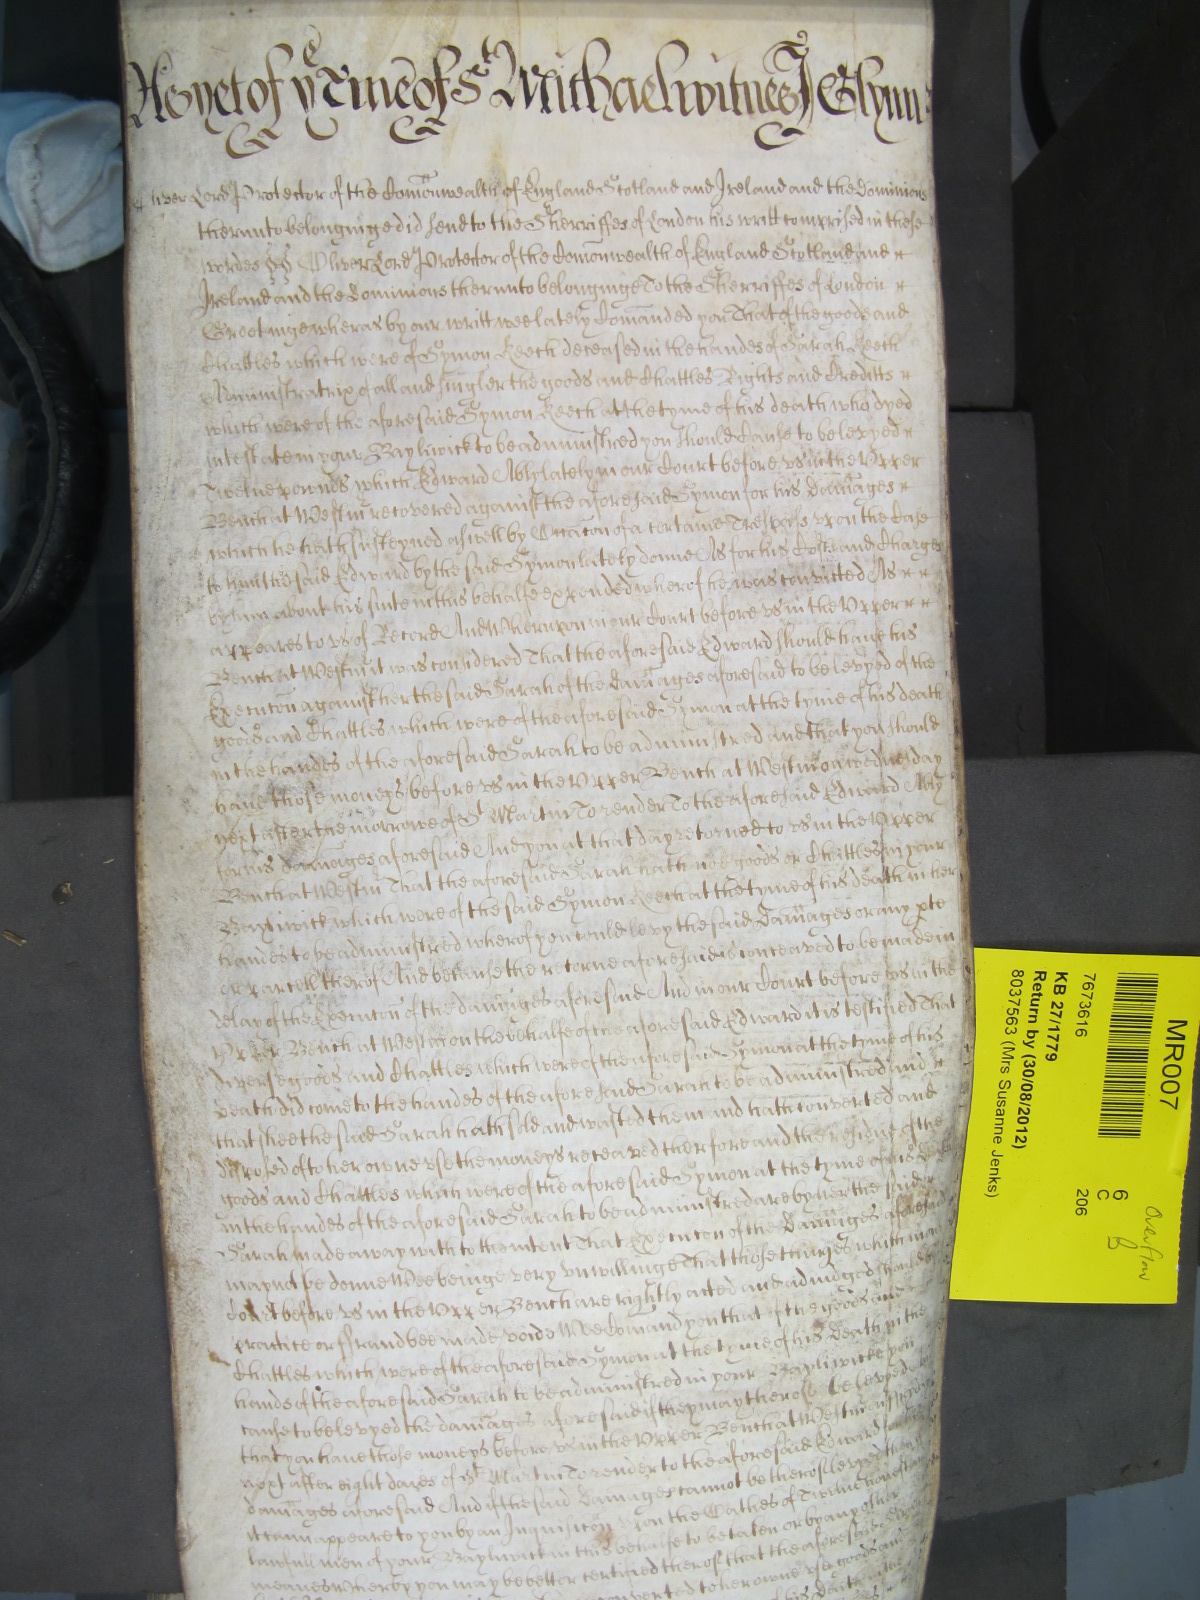 As yet of ye Tme of St Michael witnes J Glynn
Oliver Lord Protector of the Comonwealth of England Scotland and Ireland and the Dominions
thereunto belonginge did send to the Sherriffes of London his writt comprised in these
wordes Oliver Lord Protector of the Comonwealth of England Scotland and
Ireland and the Dominions thereunto belonginge To the Sherriffes of London
Greetinge wheras by our writt wee lately Comanded you That of the goods and
Chattles which were of Symon Keech deceased in the handes of Sarah Keech
Administratrix of all and singler the goods and Chattles Rights and Creditts
which were of the aforesaid Symon Keech at the tyme of his death who dyed
intestate in your Bayliwick to be administred you should Cause to be levyed
Twelve pownds which Edward Ably lately in our Court before us in the Upper
Bench at Westm recovered against the aforesaid Symon for his damages
which he hath susteyned aswell by Occacon of a certaine Trespass upon the Case
to him the said Edward by the said Symon lately donne As for his Costs and Charges
by him about his suite in this behalfe expended wherof he was convicted As
appeares to us of Record And Wherupon in our Court before us in the Upper
Bench at Westm it was considered That the aforesaid Edward should have his
Execucon against her the said Sarah of the damages aforesaid to be levyed of the
goods and Chattles which were of the aforesaid Symon at the tyme of his death
in the handes of the aforesaid Sarah to be administred and that you should
have those moneys before us in the Upper Bench at Westm on wednesday
next after the morrowe of St Martin To render To the aforesaid Edward Ably
for his damages aforesaid And you at that day retorned to us in the Upper
Bench at Westm That the aforesaid Sarah hath noe goods or Chattles in your
Bayliwick which were of the said Symon Keech at the tyme of his death in her
handes to be administred wherof you could levy the said damages or any pte
or parcell therof And because the retorne aforesaid is conceaved to be made in
delay of the Execucon of the damages aforesaid And in our Court before us in the
Upper Bench at Westm on the behalfe of the aforesaid Edward it is testified That
diverse goods and Chattles which were of the aforesaid Symon at the tyme of his
death did come to the handes of the aforesaid Sarah to be administred and
that shee the said Sarah hath sold and wasted them and hath converted and
disposed of to her owne use the moneys receaved therfore and the residue of the
goods and Chattles which were of the aforesaid Symon at the tyme of his death
in the handes of the aforesaid Sarah to be administred are by her the said
Sarah made away with to the intent That Execucon of the damages aforesaid
may not be donne Wee beinge very unwillinge That those thinges which in our
Court before us in the Upper Bench are rightly acted and adiudged should by
practice or fraud bee made voide Wee Comand you that of the goods and
Chattles which were of the aforesaid Symon at the tyme of his death in the
hands of the aforesaid Sarah to be administred in your Bayliwicke you
cause to be levyed the damages aforesaid if they may therof be levyed
that you have those moneys before us in the Upper Bench at Westm
next after eight dayes of St Martin To render to the aforesaid Edward
damages aforesaid And if the said damages cannot be therof levyed then
it cann appeare to you by an Inquisicon upon the Oathes of Twelve
lawfull men of your Bayliwick in this behalfe to be taken or by any other
meanes Wherby you may be better certified therof that the aforesaid
converted to her owne use goods and
MR007
6
C
206
7673616
KB 27/1779
Return by (30/08/2012)
8037563 (Mrs Susanne Jenks)
Overflow